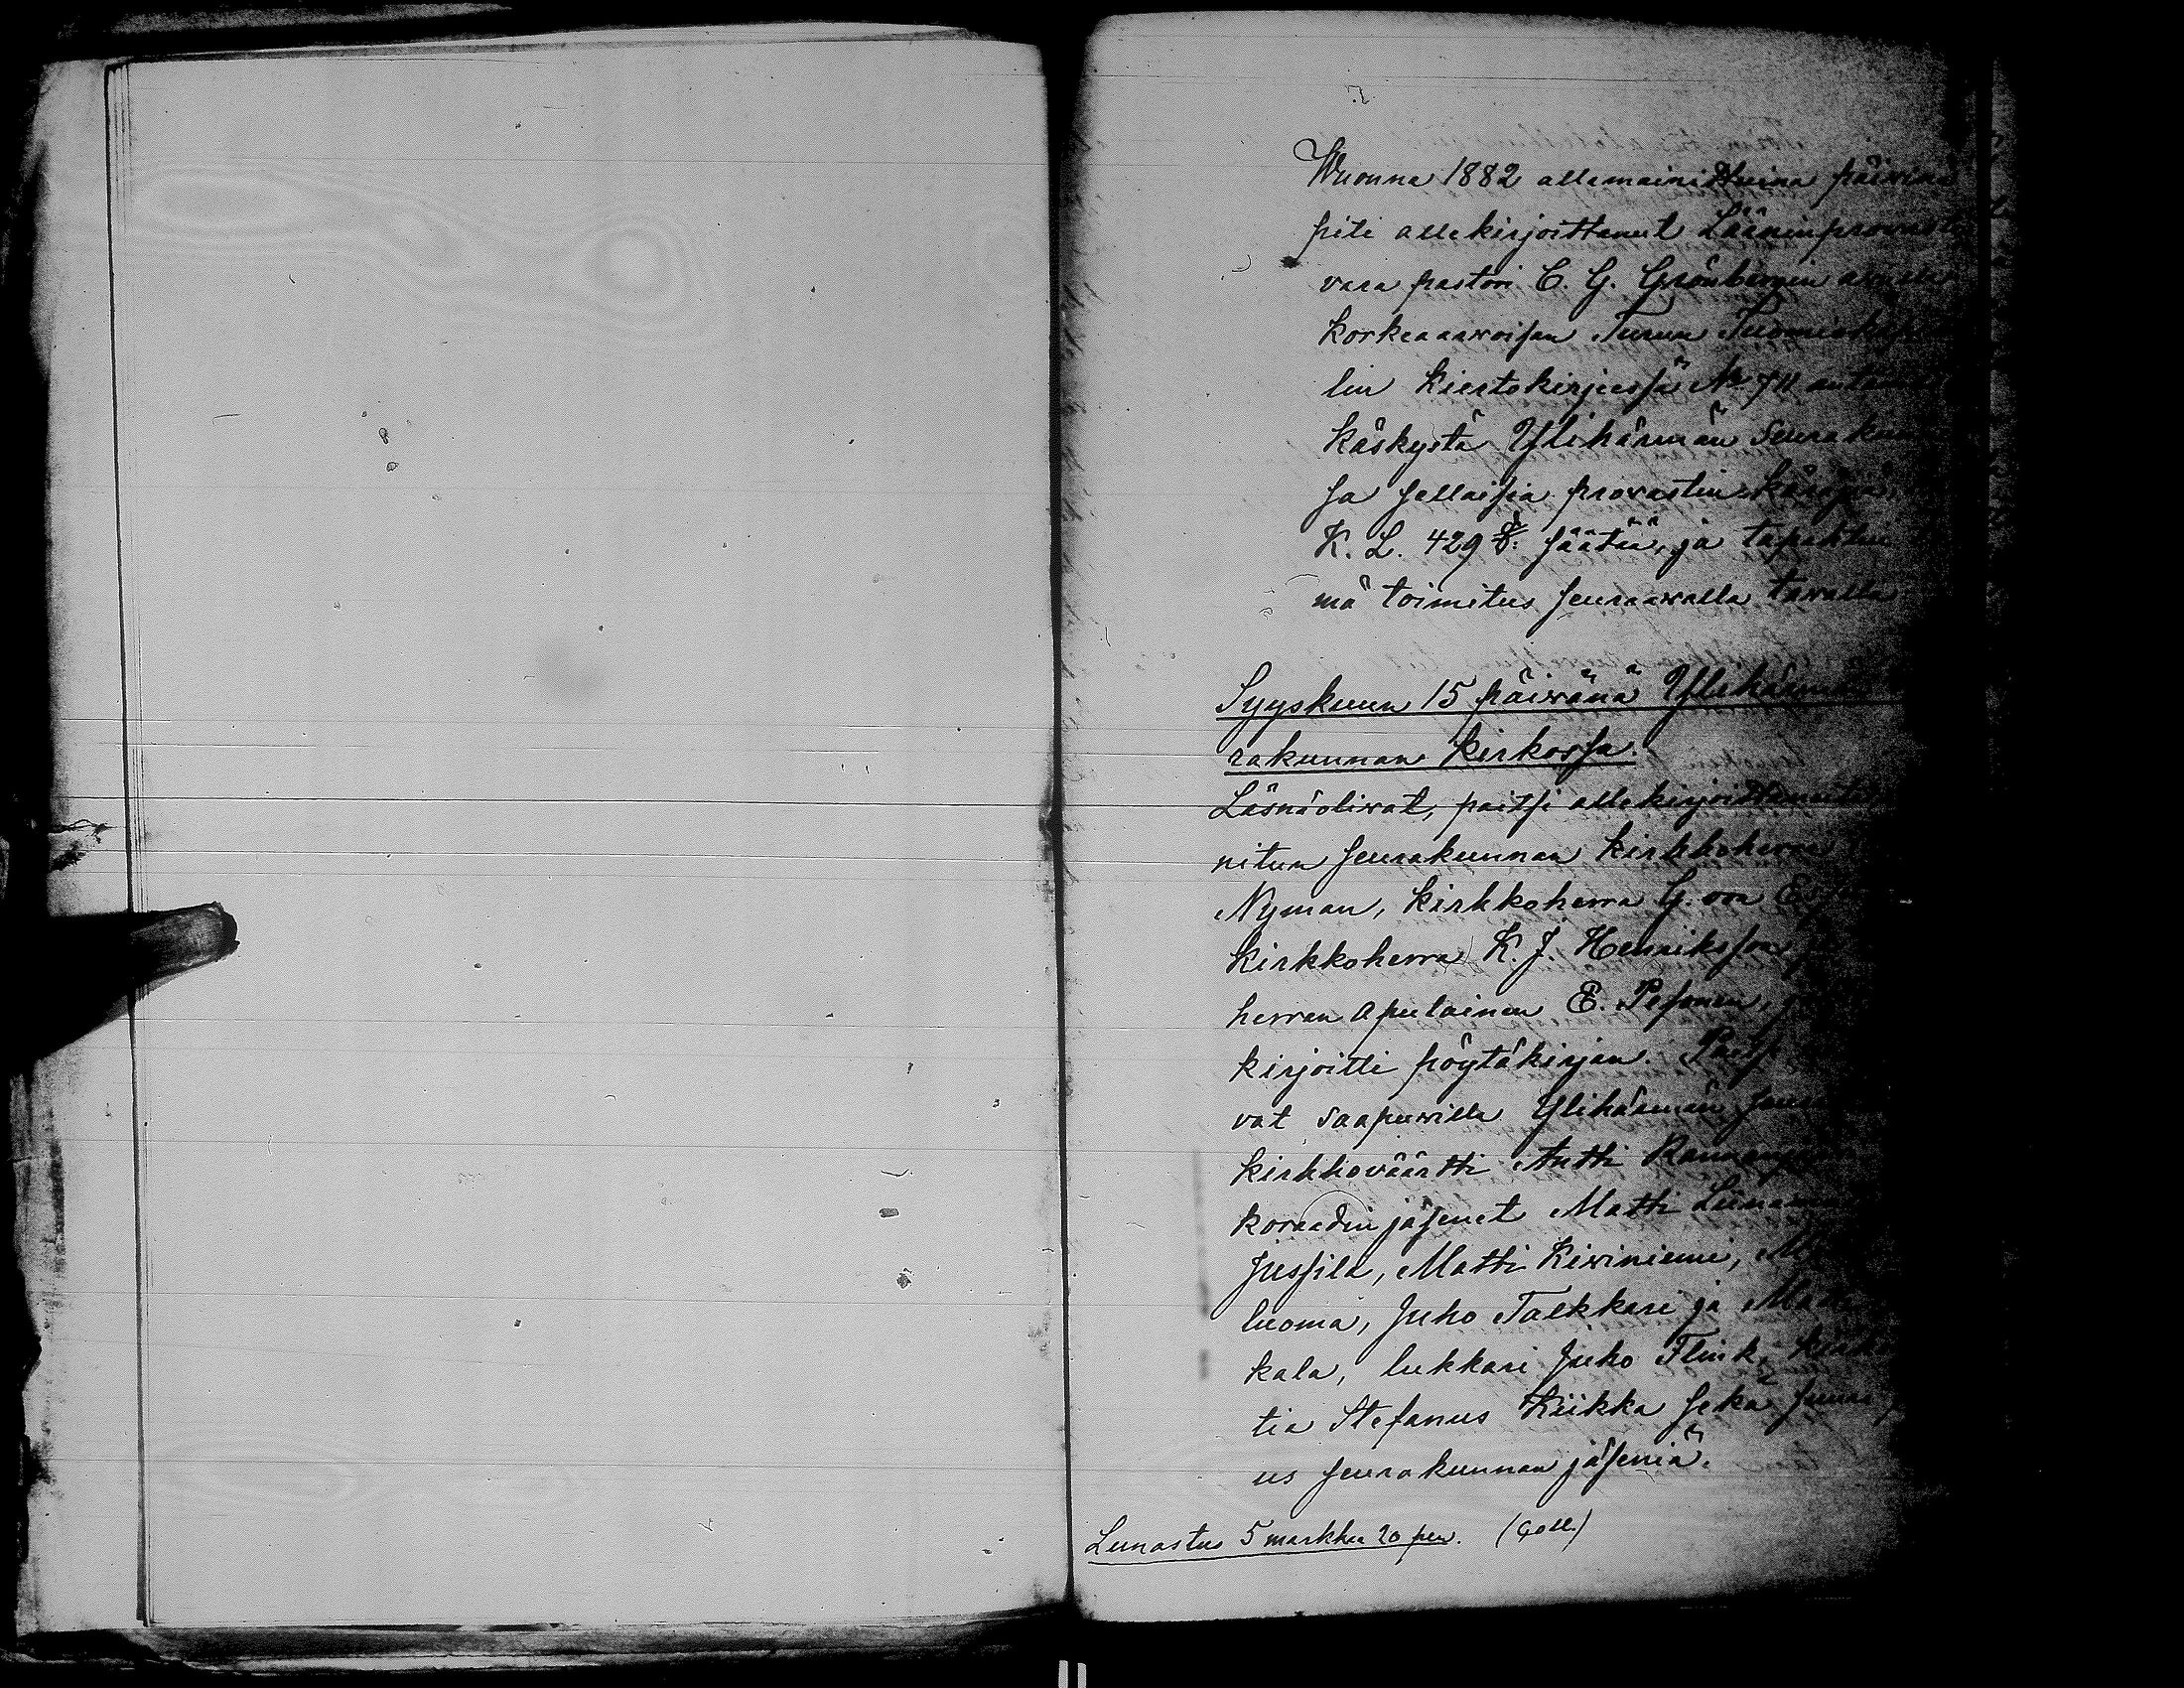 Wuonna 1882 allamainittuina päivinä
piti allekirjoittanut Lääninprovasti
vara pastori C. G. Grönbergin avulla
Korkeaarvoisan Turun Tuomiokapitu
lin Kiertokirjeessä № 711
käskystä Ylihärmän Seurakun
sa sellaisia provastin käräjiä
K. L. 429 §: säätää, ja tapahtui
mä toimitus seuraavalla tavalla
Syyskuun 15 päivänä Ylihärmän
rakunnan kirkossa.
Läsnäolivat, paitsi allekirjoittanut
nitun seurakunnan kirkkoherra
Nyman, kirkkoherra G. von Essen
kirkkoherra K. J. Henriksson
herran apulainen E. Pesonen,
kirjoitti pöytäkirjan. Paitsi
vat saapuvilla Ylihärmän seura
kirkkoväärtti Antti
koraadin jäsenet Matti
Jussila, Matti Kiviniemi,
luoma, Juho Talkkari ja Matti
kala, lukkari Juho Flink,
tia Stefanus Kiikka sekä suuri
us seurakunnan jäseniä.
Lunastus 5 markkaa 20 pen. (Coll.)